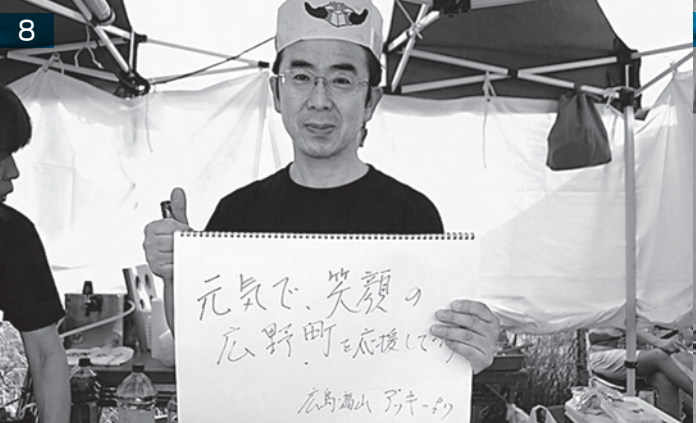 8
元気で、笑顔の
広野町を応援して
広島福山 アッキーより